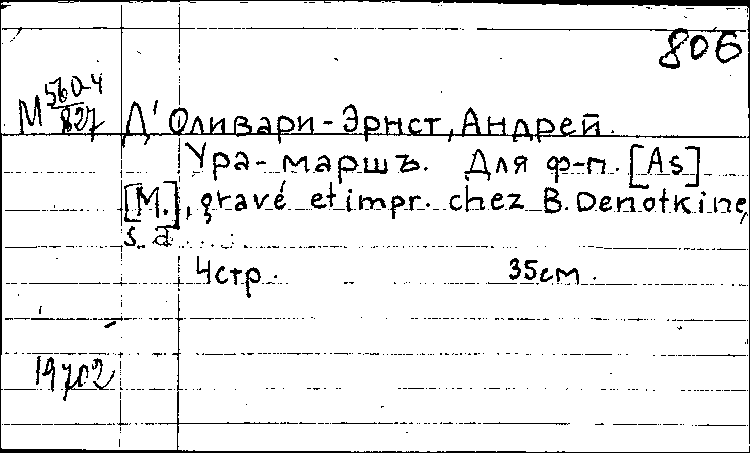 806
М 560-4/827
Д'Оливари-Эрнст, Андрей.
Ура-маршъ. Для ф-п. [As]
[М.], gravé et impr. chez B. Denotkine,
s. a.
4стр. 35см.
19702